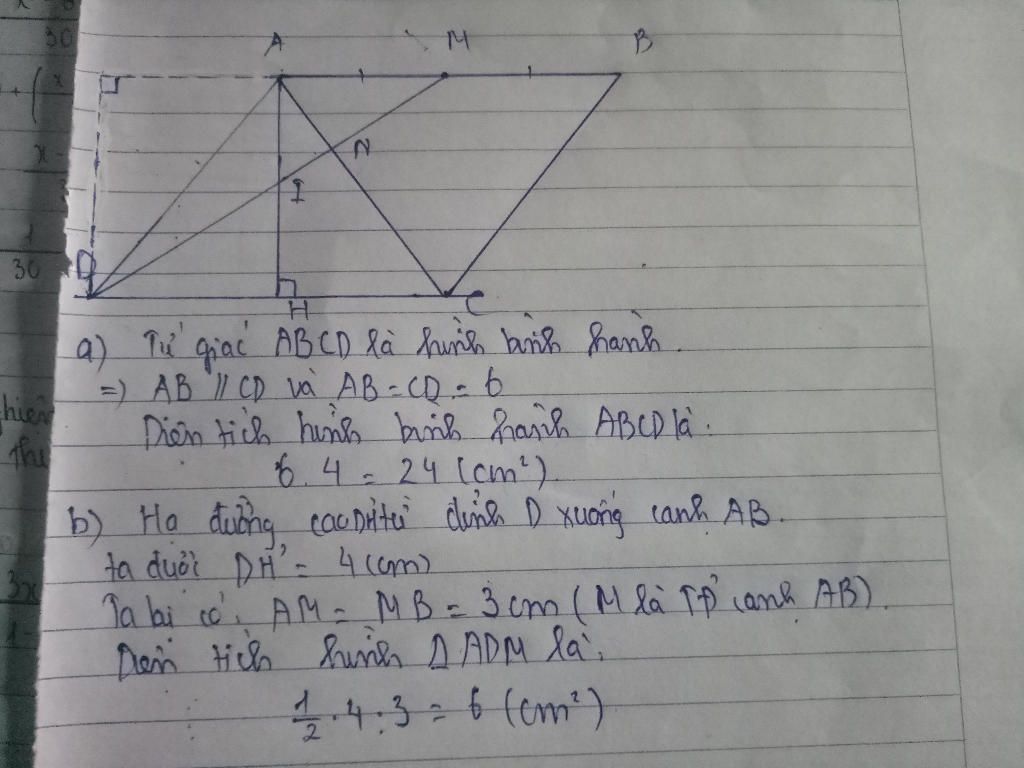 A M B
N
I
D H C
a) Tứ giác ABCD là hình bình hành.
=) AB // CD và AB = CD = 6
Diện tích hình bình hành ABCD là:
6.4 = 24 (cm²)
b) Hạ đường cao DH' từ đỉnh D xuống cạnh AB.
ta được DH' = 4 (cm)
Ta lại có: AM = MB = 3cm (M là TĐ cạnh AB).
Diện tích hình Δ ADM là:
1/2 . 4 . 3 = 6 (cm²)
30
x -
1
30
3x